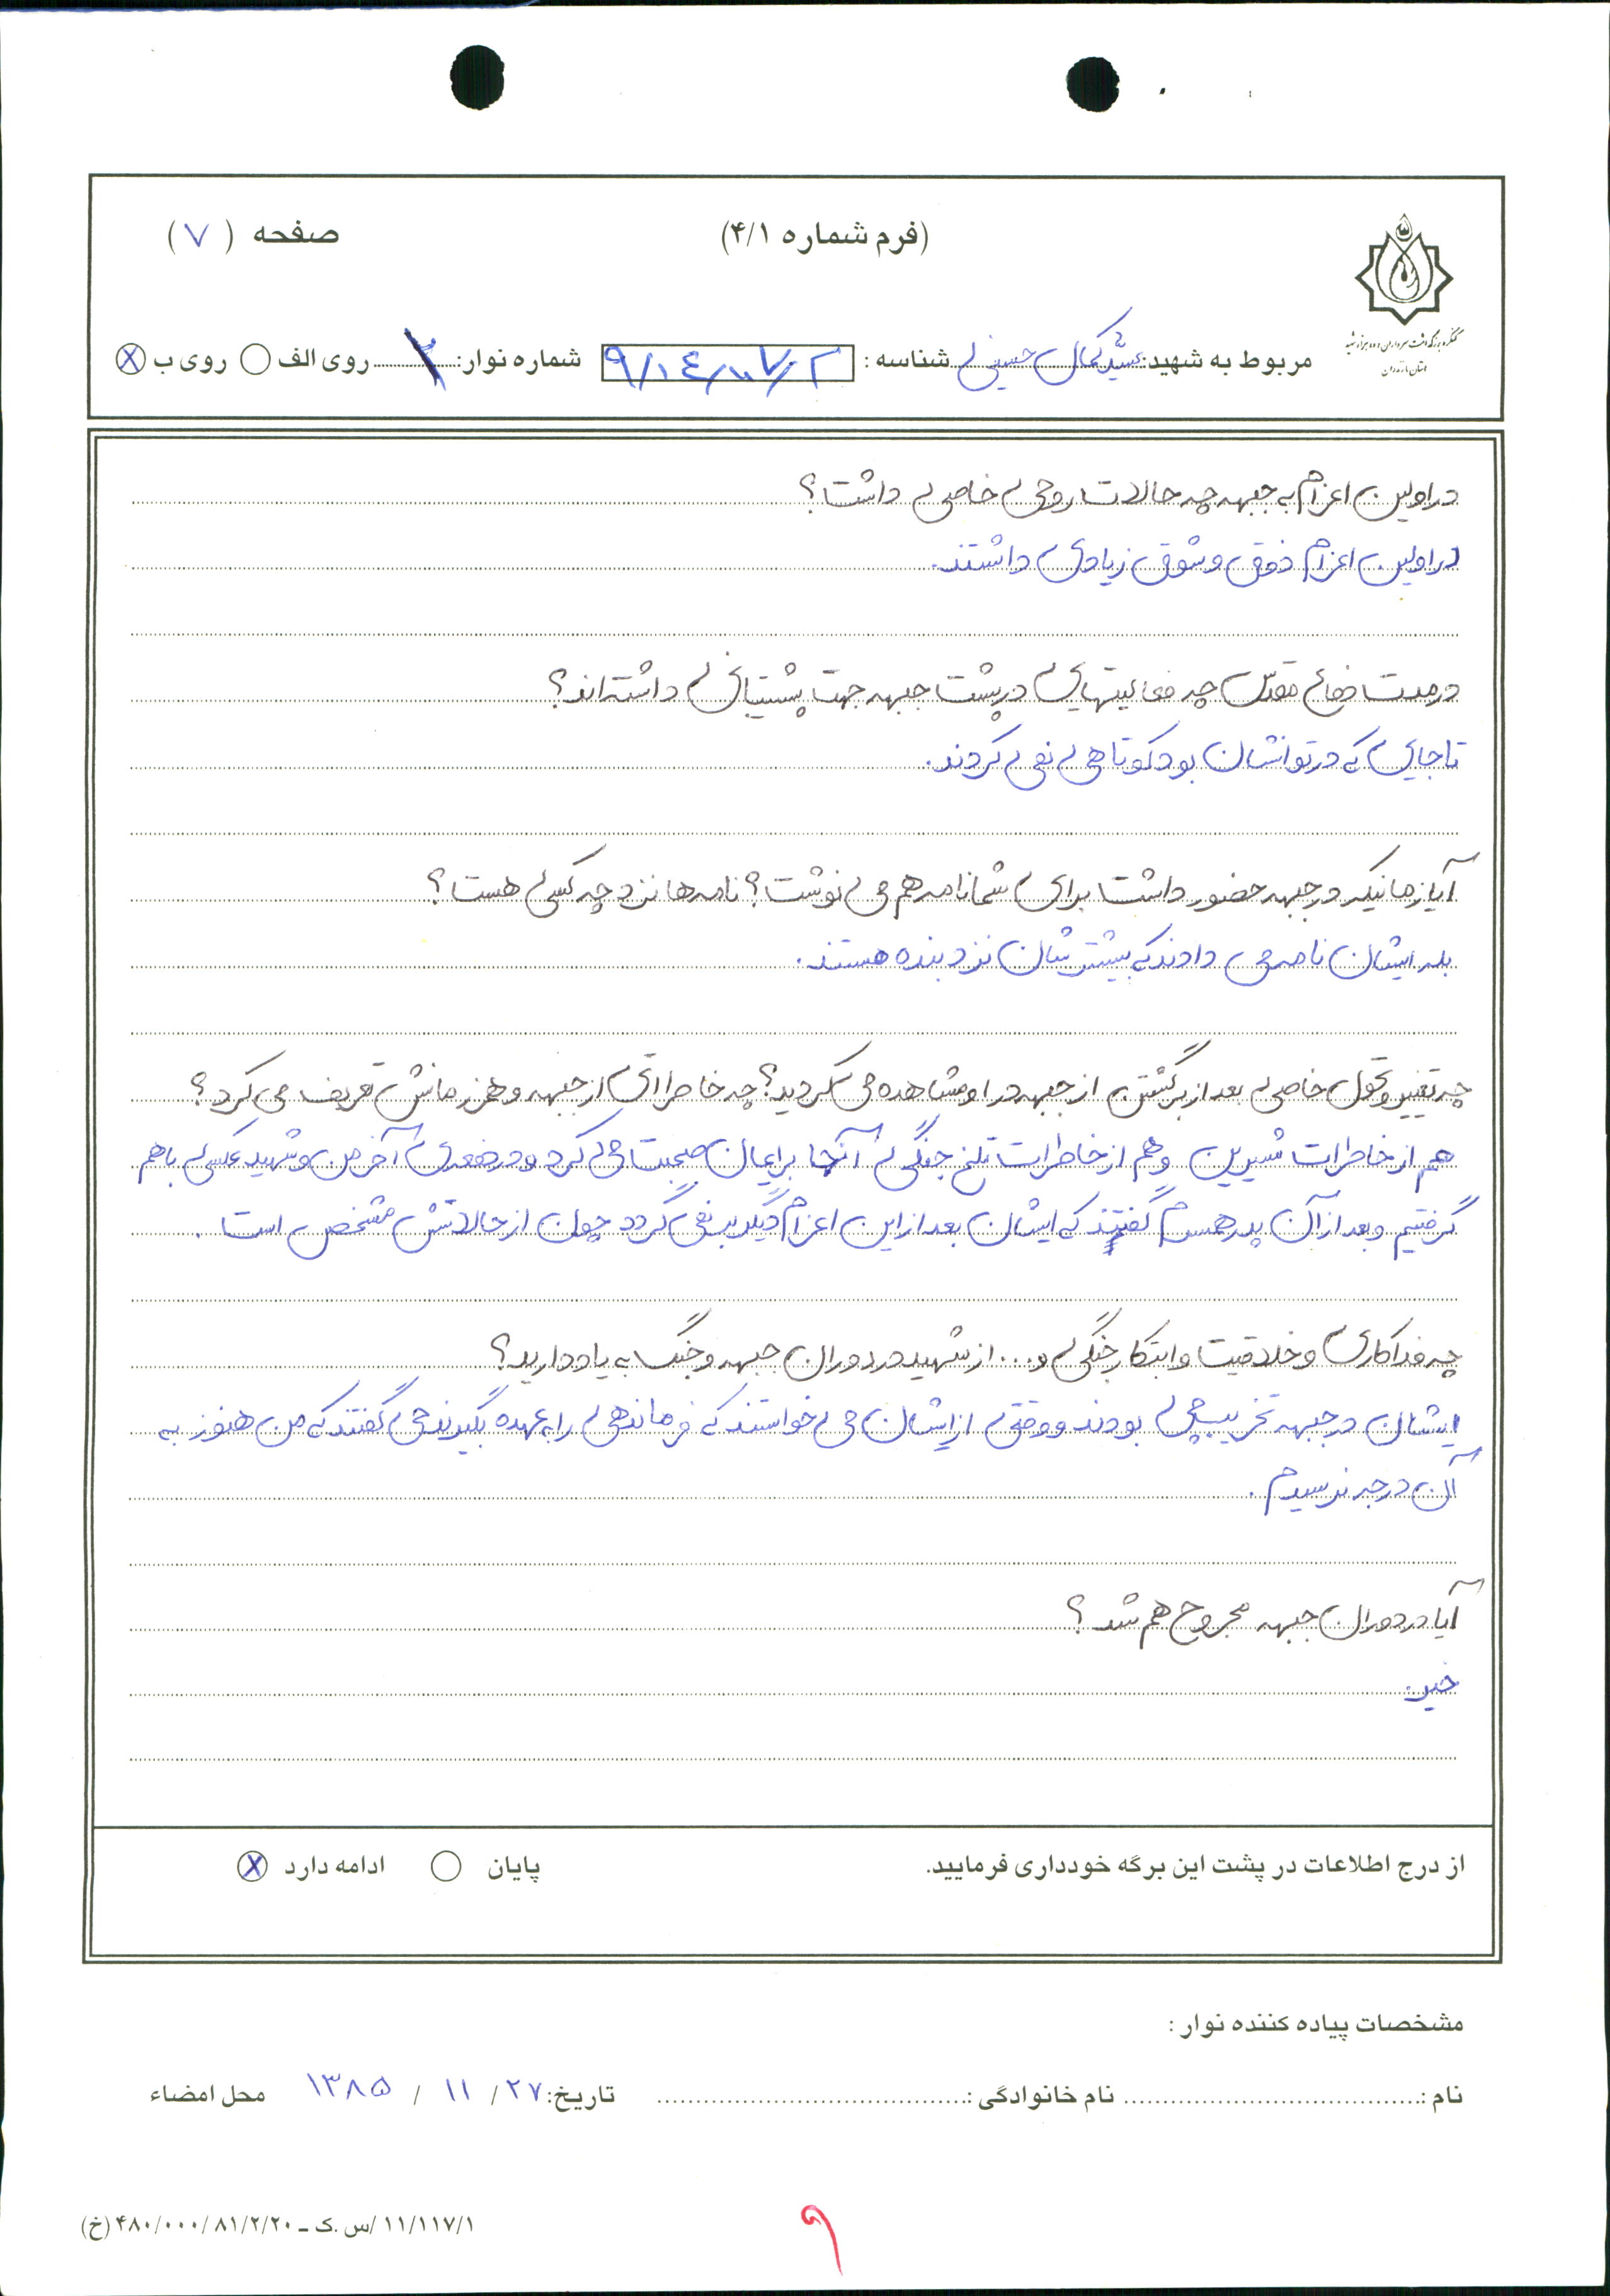 (فرم شماره ۴/۱)
صفحه (۷)
کنگره بزرگداشت سرداران و ده هزار شهید
استان مازندران
مربوط به شهید: سید کمال حسینی شناسه : شماره نوار: روی الف روی ب
در اولین اعزام به جبهه چه حالات روحی خاصی داشت؟
در اولین اعزام ذوق و شوق زیادی داشتند.
در مدت دفاع مقدس چه فعالیتهایی در پشت جبهه جهت پشتیبانی داشته‌اند؟
تا جایی که در توانشان بود کوتاهی نمی کردند.
آیا زمانیکه در جبهه حضور داشت برای شما نامه هم می نوشت؟ نامه‌ها نزد چه کسی هست؟
بله ایشان نامه می دادند که بیشترشان نزد بنده هستند.
چه تغییر و تحول خاصی بعد از برگشتن از جبهه در او مشاهده می کردید؟ چه خاطراتی از جبهه و همرزمانش تعریف می کرد؟
هم از خاطرات شیرین و هم از خاطرات تلخ جنگی آنجا برایمان صحبت می کرد و در دفعه‌ی آخر من و شهید عکسی با هم
گرفتیم و بعد از آن پدر همسرم گفتند که ایشان بعد از این اعزام دیگر بر نمی گردد چون از حالاتش مشخص است .
چه فداکاری و خلاقیت و ابتکار جنگی و... از شهید در دوران جبهه و جنگ به یاد دارید؟
ایشان در جبهه تخریب‌چی بودند و وقتی از ایشان می خواستند که فرماندهی را به عهده بگیرند می گفتند که من هنوز به
آن درجه نرسیدم .
آیا در دوران جبهه مجروح هم شد؟
خیر.
از درج اطلاعات در پشت این برگه خودداری فرمایید.
پایان ادامه دارد
مشخصات پیاده کننده نوار :
نام : نام خانوادگی : تاریخ: ۲۷ / ۱۱ / ۱۳۸۵ محل امضاء
۱۱/۱۱۷/۱ /س.ک – ۴۸۰/۰۰۰/۸۱/۲/۲۰ (خ)
۹